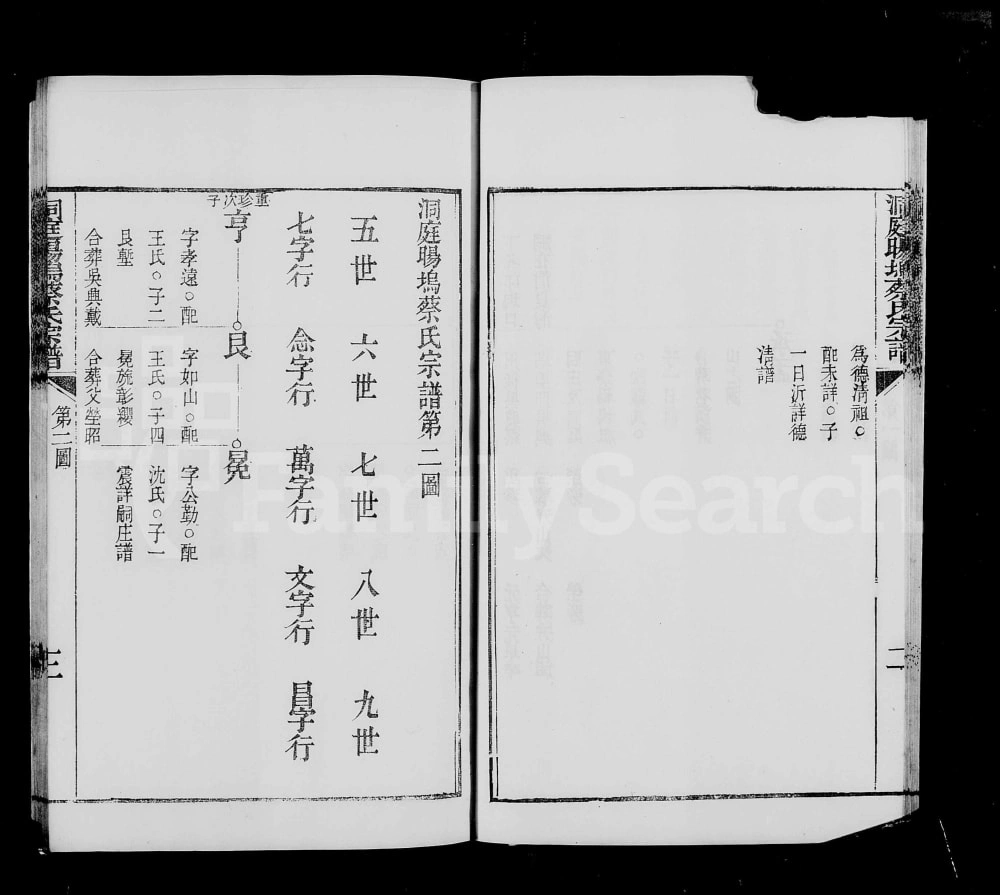 洞庭暘塢蔡氏宗譜
二
為德清祖○
配未詳○子
一日沂詳德
清譜
洞庭暘塢蔡氏宗譜第二圖
五世 六世 七世 八世 九世
七字行 念字行 萬字行 文字行 昌字行
重珍次子
亨 艮 冕
字孝遠○配
王氏○子二
艮塹
合葬吳典戴
字如山○配
王氏○子四
冕旒彰纓
合葬父塋昭
字公勤○配
沈氏○子一
震詳嗣庄譜
洞庭暘塢蔡氏宗譜
第二圖
三
FamilySearch